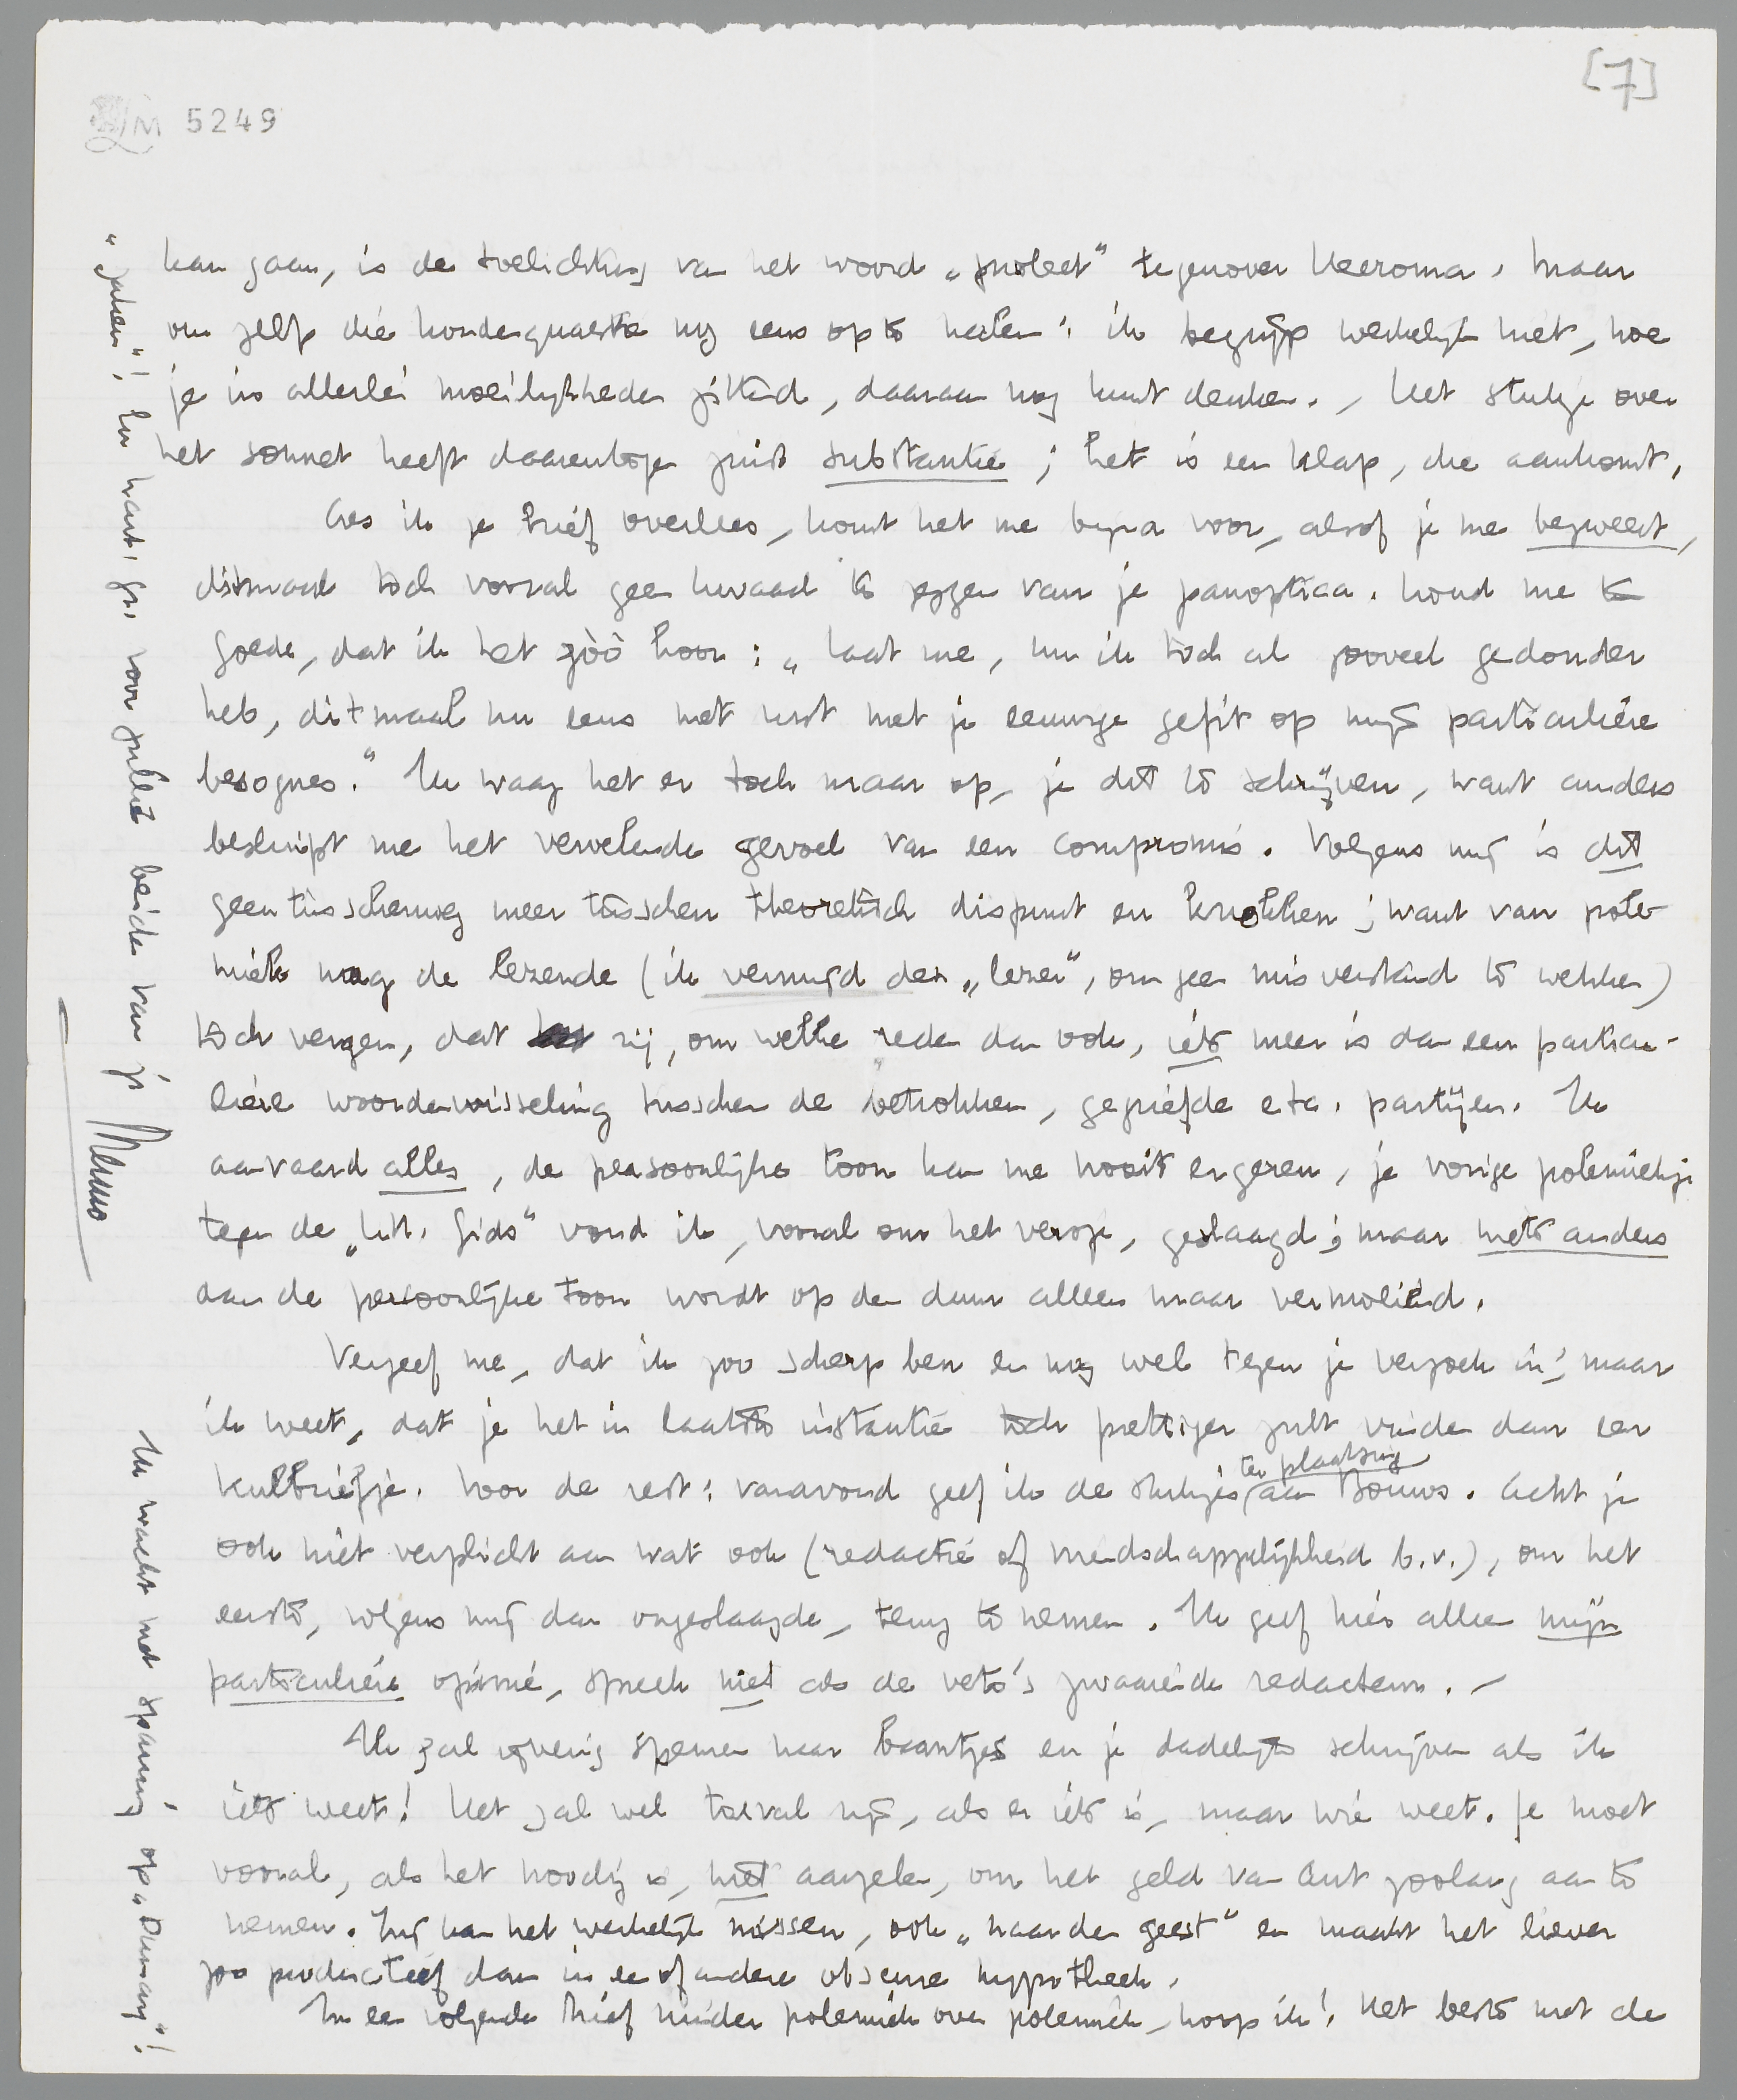 [7]
LM 5249
kan gaan, is de toelichting van het woord „proleet” tegenover Heeroma. Maar
om zelfs die hondequaestie nog eens op te halen: ik begrijp werkelijk niet, hoe
je in allerlei moeilijkheden zittend, daaraan nog kunt denken. Het stukje over
het sonnet heeft daarentegen juist substantie; het is een klap, die aankomt.
Als ik je brief overlees, komt het me bijna voor, alsof je me bezweert,
ditmaal toch vooral geen kwaad te zeggen van je panoptica. Houd me te
goede, dat ik het zòò hoor: „laat me, nu ik toch al zooveel gedonder
heb, ditmaal nu eens met rust met je eeuwige gefit op mijn particuliere
besognes.” Ik waag het er toch maar op, je dit te schrijven, want anders
bekruipt me het vervelende gevoel van een compromis. Volgens mij is dit
geen tusschenweg meer tusschen theoretisch dispuut en knokken; want van pole-
miek mag de lezende (ik vermijd den „lezer”, om geen misverstand te wekken)
toch vergen, dat zij, om welke reden dan ook, iets meer is dan een particu-
liere woordenwisseling tusschen de betrokken, gegriefde etc. partijen. Ik
aanvaard alles, de persoonlijke toon kan me nooit ergeren, je vorige polemiekje
tegen de „Litt. Gids” vond ik, vooral om het versje, geslaagd; maar niets anders
dan de persoonlijke toon wordt op den duur alleen maar vermoeiend.
Vergeef me, dat ik zoo scherp ben en nog wel tegen je verzoek in; maar
ik weet, dat je het in laatste instantie toch prettiger zult vinden dan een
kulbriefje. Voor de rest: vanavond geef ik de stukjes ter plaatsing aan Bouws. Acht je
ook niet verplicht aan wat ook (redactie of vriendschappelijkheid b.v.), om het
eerste, volgens mij dan ongeslaagde, terug te nemen. Ik geef hier alleen mijn
particuliere opinie, spreek niet als de veto's zwaaiende redacteur. –
Ik zal ijverig speuren naar baantjes en je dadelijk schrijven als ik
iets weet! Het zal wel toeval zijn, als er iets is, maar wie weet. Je moet
vooral, als het noodig is, niet aarzelen, om het geld van Ant zoolang aan te
nemen. Zij kan het werkelijk missen, ook „naar den geest” en maakt het liever
zoo productief dan in een of andere obscure hypotheek.
In een volgende brief minder polemiek over polemiek, hoop ik! Het beste met de
„zaken”! Een hart. gr. voor jullie beiden van je
Menno
Ik wacht met spanning op „Dumay”!